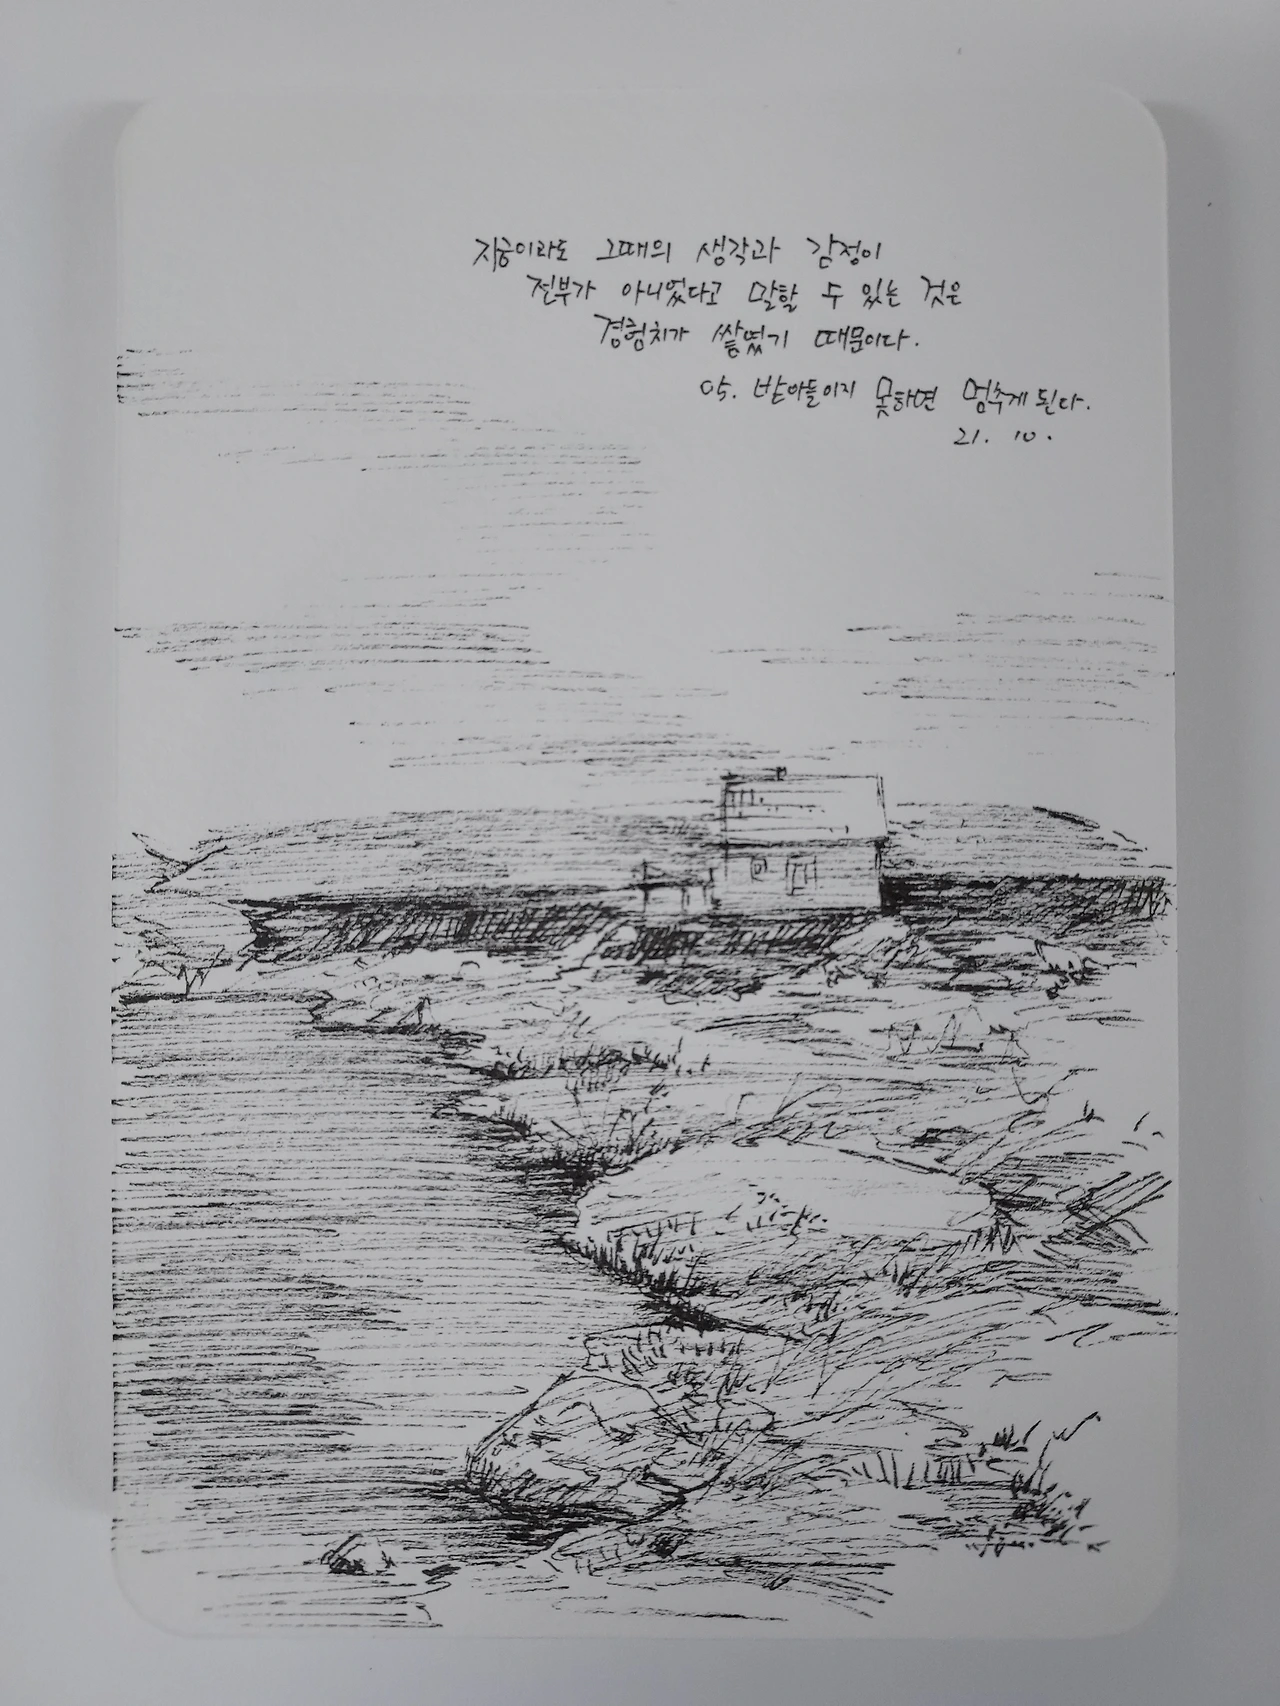 지금이라도 그때의 생각과 감정이
전부가 아니었다고 말할 수 있는 것은
경험치가 쌓였기 때문이다.
05. 받아들이지 못하면 멈추게 된다.
21. 10.